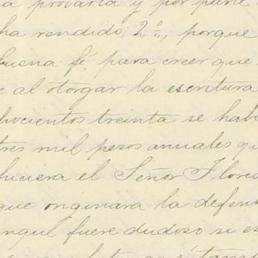 la probaria y por parte
ha rendido, 2º, porque
buena fé, para creer que
e al otorgar la escritura
hocientos treinta se hab
tres mil pesos anuales qu
hiciera el Señor Flores
que originara la defen
unque fuere dudoso si es